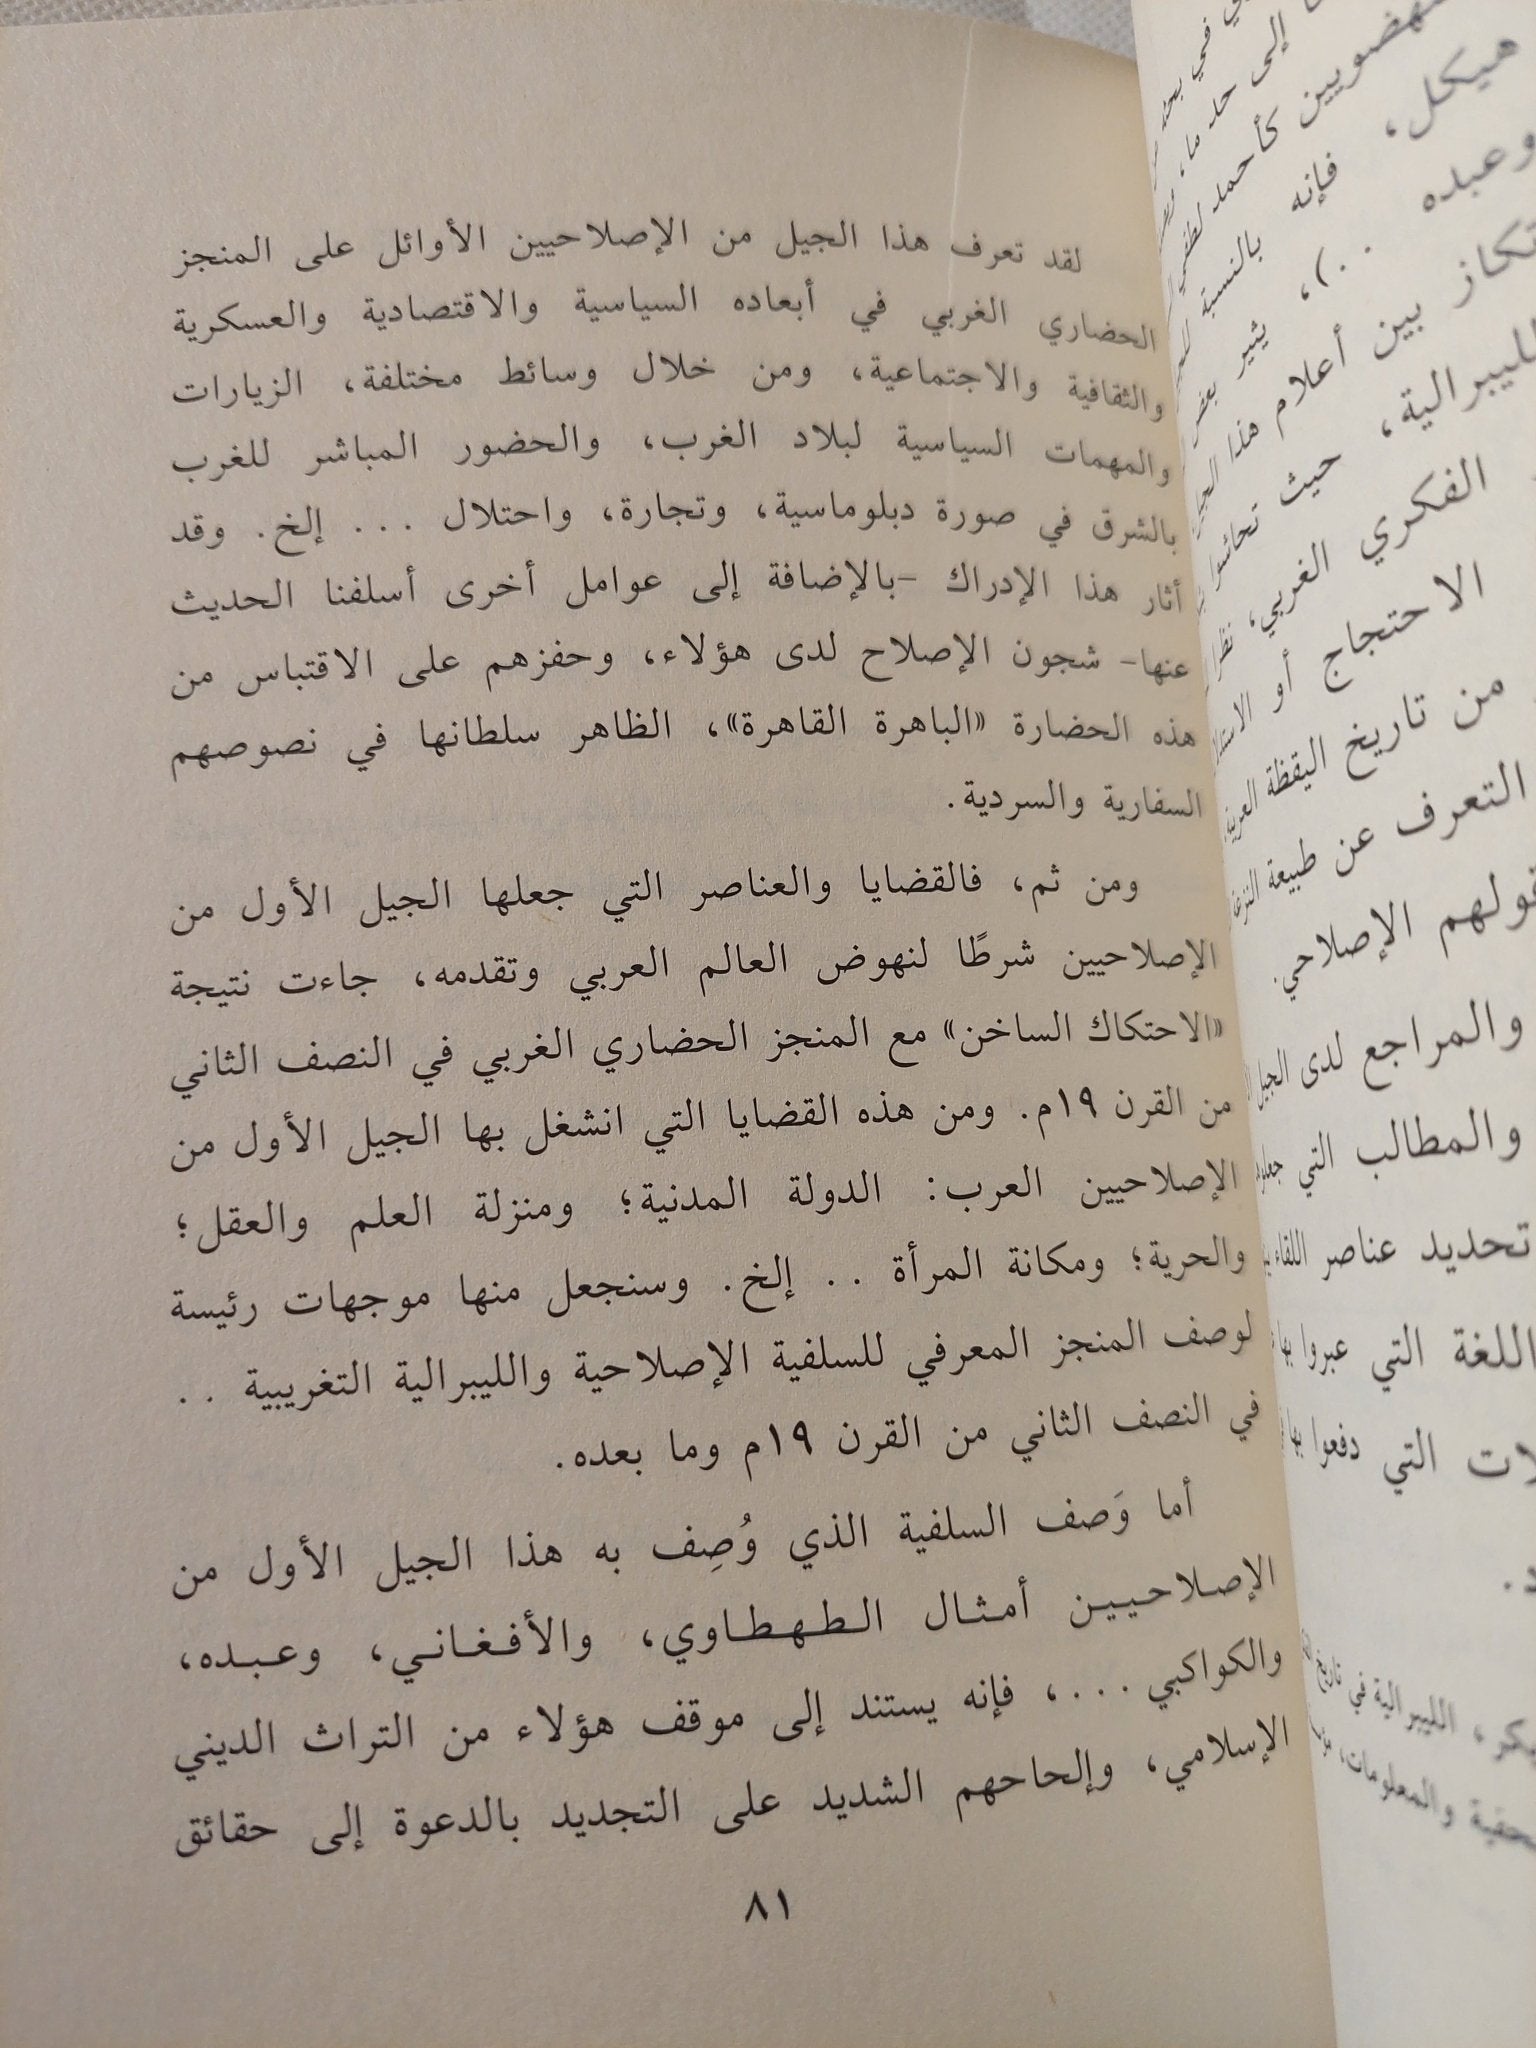 لقد تعرف هذا الجيل من الإصلاحيين الأوائل على المنجز
الحضاري الغربي في أبعاده السياسية والاقتصادية والعسكرية
والثقافية والاجتماعية، ومن خلال وسائط مختلفة، الزيارات
والمهمات السياسية لبلاد الغرب، والحضور المباشر للغرب
بالشرق في صورة دبلوماسية، وتجارة، واحتلال ... إلخ. وقد
أثار هذا الإدراك -بالإضافة إلى عوامل أخرى أسلفنا الحديث
عنها- شجون الإصلاح لدى هؤلاء، وحفزهم على الاقتباس من
هذه الحضارة «الباهرة القاهرة»، الظاهر سلطانها في نصوصهم
السفارية والسردية.
ومن ثم، فالقضايا والعناصر التي جعلها الجيل الأول من
الإصلاحيين شرطًا لنهوض العالم العربي وتقدمه، جاءت نتيجة
«الاحتكاك الساخن» مع المنجز الحضاري الغربي في النصف الثاني
من القرن ١٩م. ومن هذه القضايا التي انشغل بها الجيل الأول من
الإصلاحيين العرب: الدولة المدنية؛ ومنزلة العلم والعقل؛
والحرية؛ ومكانة المرأة .. إلخ. وسنجعل منها موجهات رئيسة
لوصف المنجز المعرفي للسلفية الإصلاحية والليبرالية التغريبية ..
في النصف الثاني من القرن ١٩م وما بعده.
أما وَصف السلفية الذي وُصِف به هذا الجيل الأول من
الإصلاحيين أمثال الطهطاوي، والأفغاني، وعبده،
والكواكبي ...، فإنه يستند إلى موقف هؤلاء من التراث الديني
الإسلامي، وإلحاحهم الشديد على التجديد بالدعوة إلى حقائق
٨١
إلى حد ما،
كأحمد لطفي
هيكل، فإنه بالنسبة
وعبده ..)، يثير بعض
بين أعلام هذا
حيث
الفكري الغربي،
الاحتجاج أو
من تاريخ اليقظة
التعرف عن طبيعة
الإصلاحي.
والمراجع لدى الجيل
والمطالب التي
تحديد عناصر اللقاء
اللغة التي عبروا بها
التي دفعوا بها
الليبرالية في تاريخ
والمعلومات،